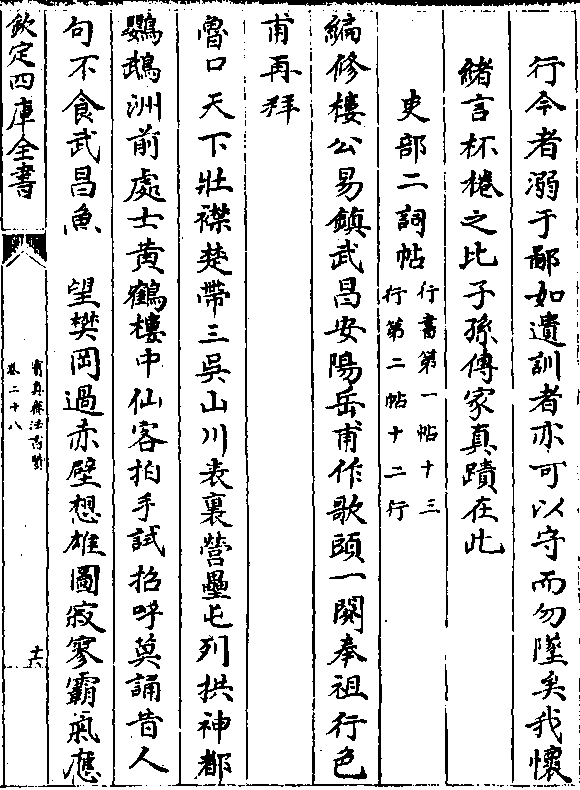 行今者溺于鄙如遺訓者亦可以守而勿墜矣我懷
緒言杯棬之比子孫傳家真蹟在此
吏部二詞帖
行書第一帖十三
行第二帖十二行
編修樓公易鎮武昌安陽岳甫作歌頭一闋奉祖行色
甫再拜
魯口天下壯襟楚帶三吳山川表裏營壘屯列拱神都
鸚鵡洲前處士黄鶴樓中仙客拍手試招呼莫誦昔人
句不食武昌魚　望樊岡過赤壁想雄圖寂寥霸氣應
欽定四庫全書
寳真齋法書贊
卷二十八
十六